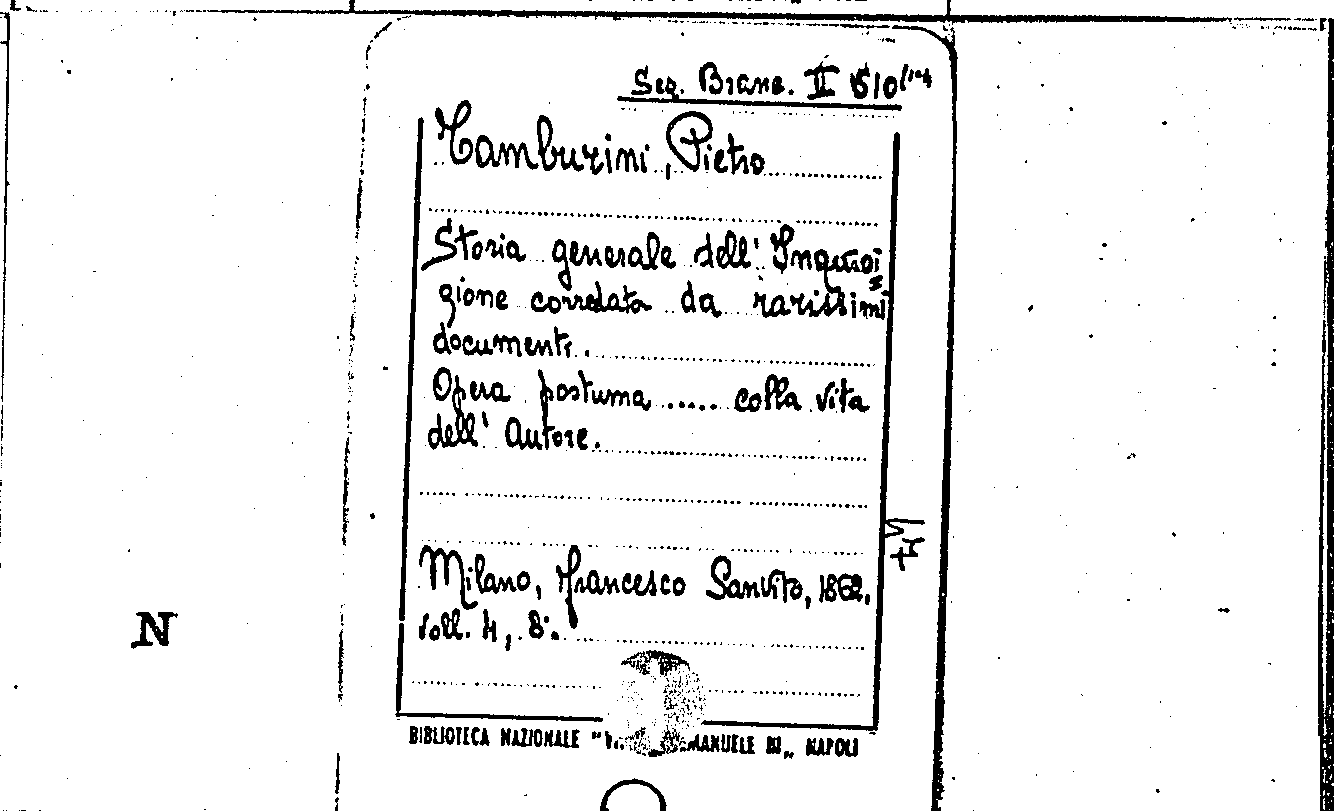 Seq. Branc. II 510
Tamburini, Pietro
Storia generale dell' Inquisi=
zione corredata da rarissimi
documenti.
Opera postuma ..... colla vita
dell' Autore.
Milano, Francesco Sanvito, 1862.
voll. 4, 8°.
N
BIBLIOTECA NAZIONALE " EMANUELE III„ NAPOLI